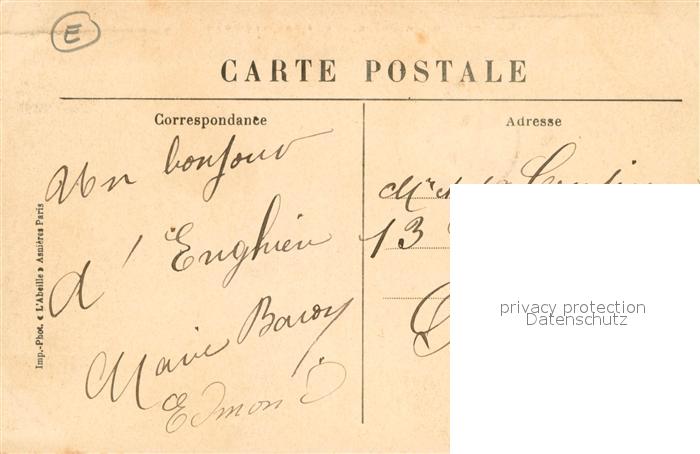 E
CARTE POSTALE
Correspondance
Adresse
Un bonjour
d'Enghien
Marie Baroy
Edmond
Imp.-Phot. « L'Abeille » Asnières Paris
13
privacy protection
Datenschutz